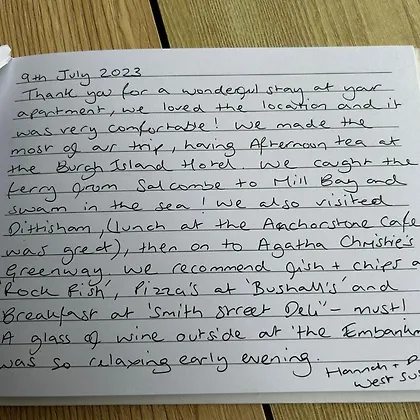 9th July 2023
Thank you for a wonderful stay at your
apartment, we loved the location and it
was very comfortable! We made the
most of our trip, having Afternoon tea at
the Burgh Island Hotel. We caught the
ferry from Salcombe to Mill Bay and
swam in the sea! We also visited
Dittisham, (lunch at the Anchorstone Cafe
was great), then on to Agatha Christie's
Greenway. We recommend fish + chips a
'Rock Fish', Pizza's at 'Bushall's' and
Breakfast at 'Smith Street Deli' - must!
A glass of wine outside at 'the Embankm
was so relaxing early evening.
Hannah +
West Sus